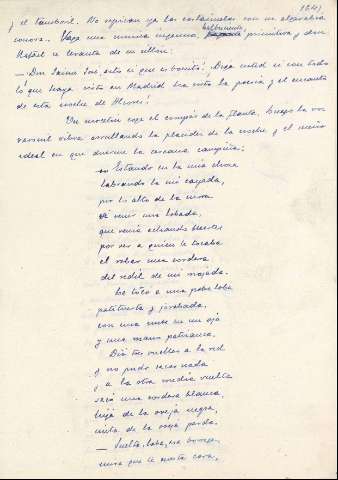 164)
y el tamboril. No repican ya las castañuelas con su algarabía
sonora. Haya una música ingenua, bellamente primitiva y don
Rafael se levanta de su sillón:
— Don Jaime Luis, esto sí que es bonito! Diga usted si con todo
lo que haya visto en Madrid ha visto la poesía y el encanto
de esta noche de
Un mocetón coge el compás de la flauta. Luego la voz
varonil vibra arrullando la placidez de la noche y el sueño
ideal en que duerme la cercana campiña:
— Estando en la mía choza
labrando la mi cayada,
por lo alto de la sierra
vi venir una lobada,
que venía echando suertes
por ver a quién le tocaba
el robar una cordera
del redil de mi majada.
Le tocó a una pobre loba
patituerta y jorobada,
con una nube en un ojo
y una mano
Dio tres vueltas a la red
y no pudo sacar nada
y a la otra media vuelta
sacó una cordera blanca
hija de la oveja negra,
nieta de la oveja parda.
— Suelta, loba, esa borrega
mira que te costa cara,